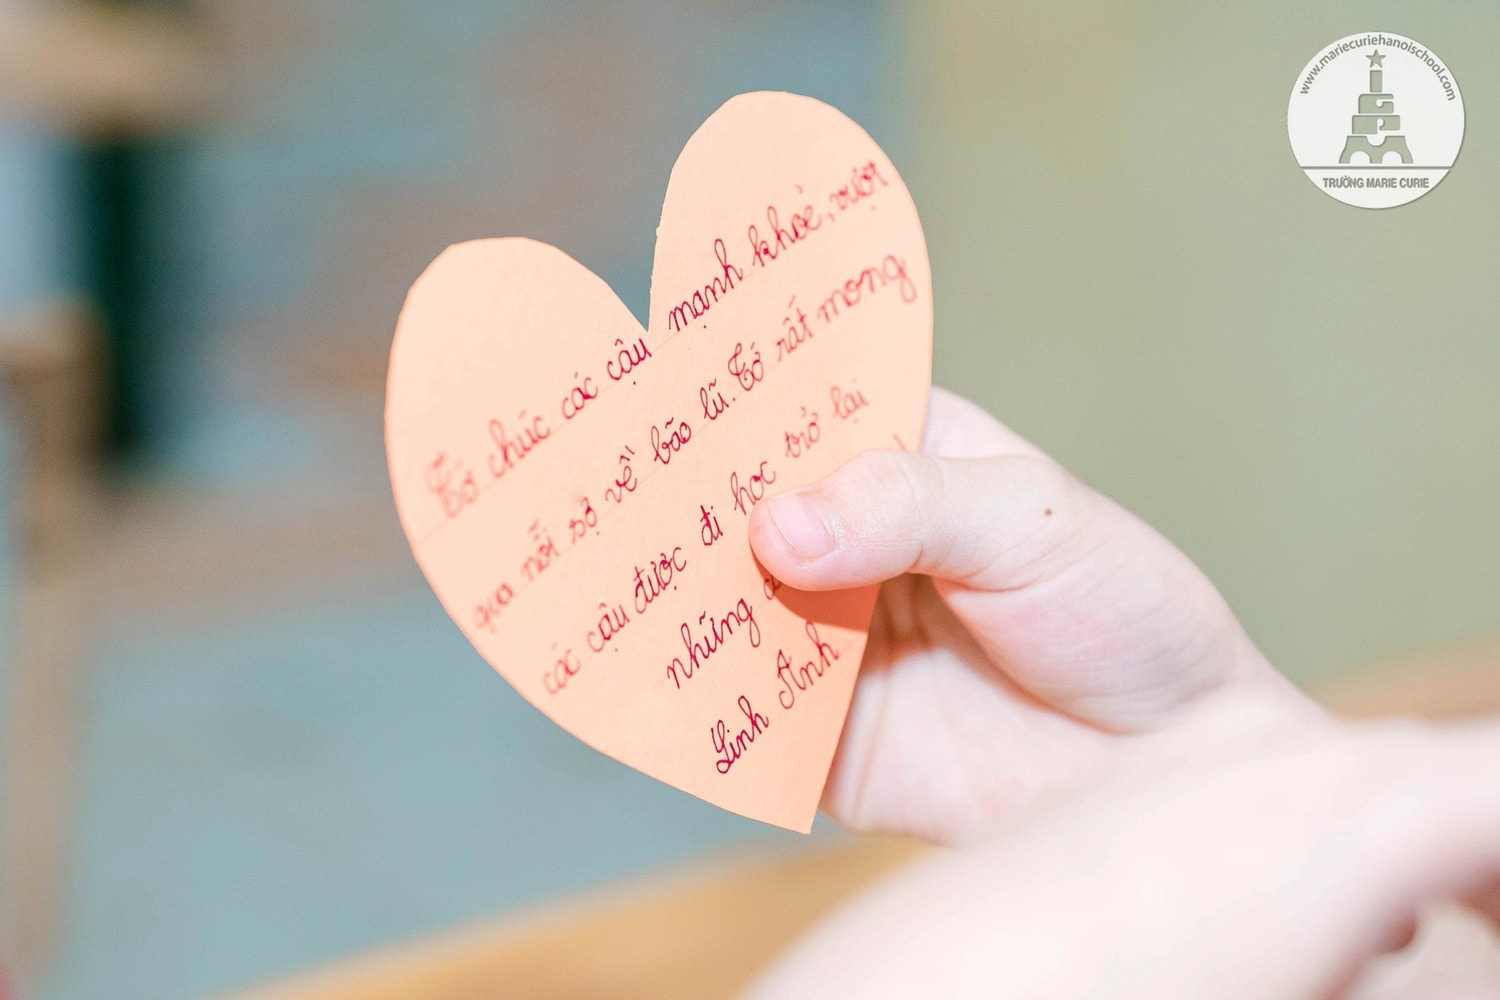 Tớ chúc các cậu mạnh khỏe, vượt
qua nỗi sợ về bão lũ. Tớ rất mong
các cậu được đi học trở lại
những
Linh Anh
www.mariecuriehanoischool.com
TRƯỜNG MARIE CURIE